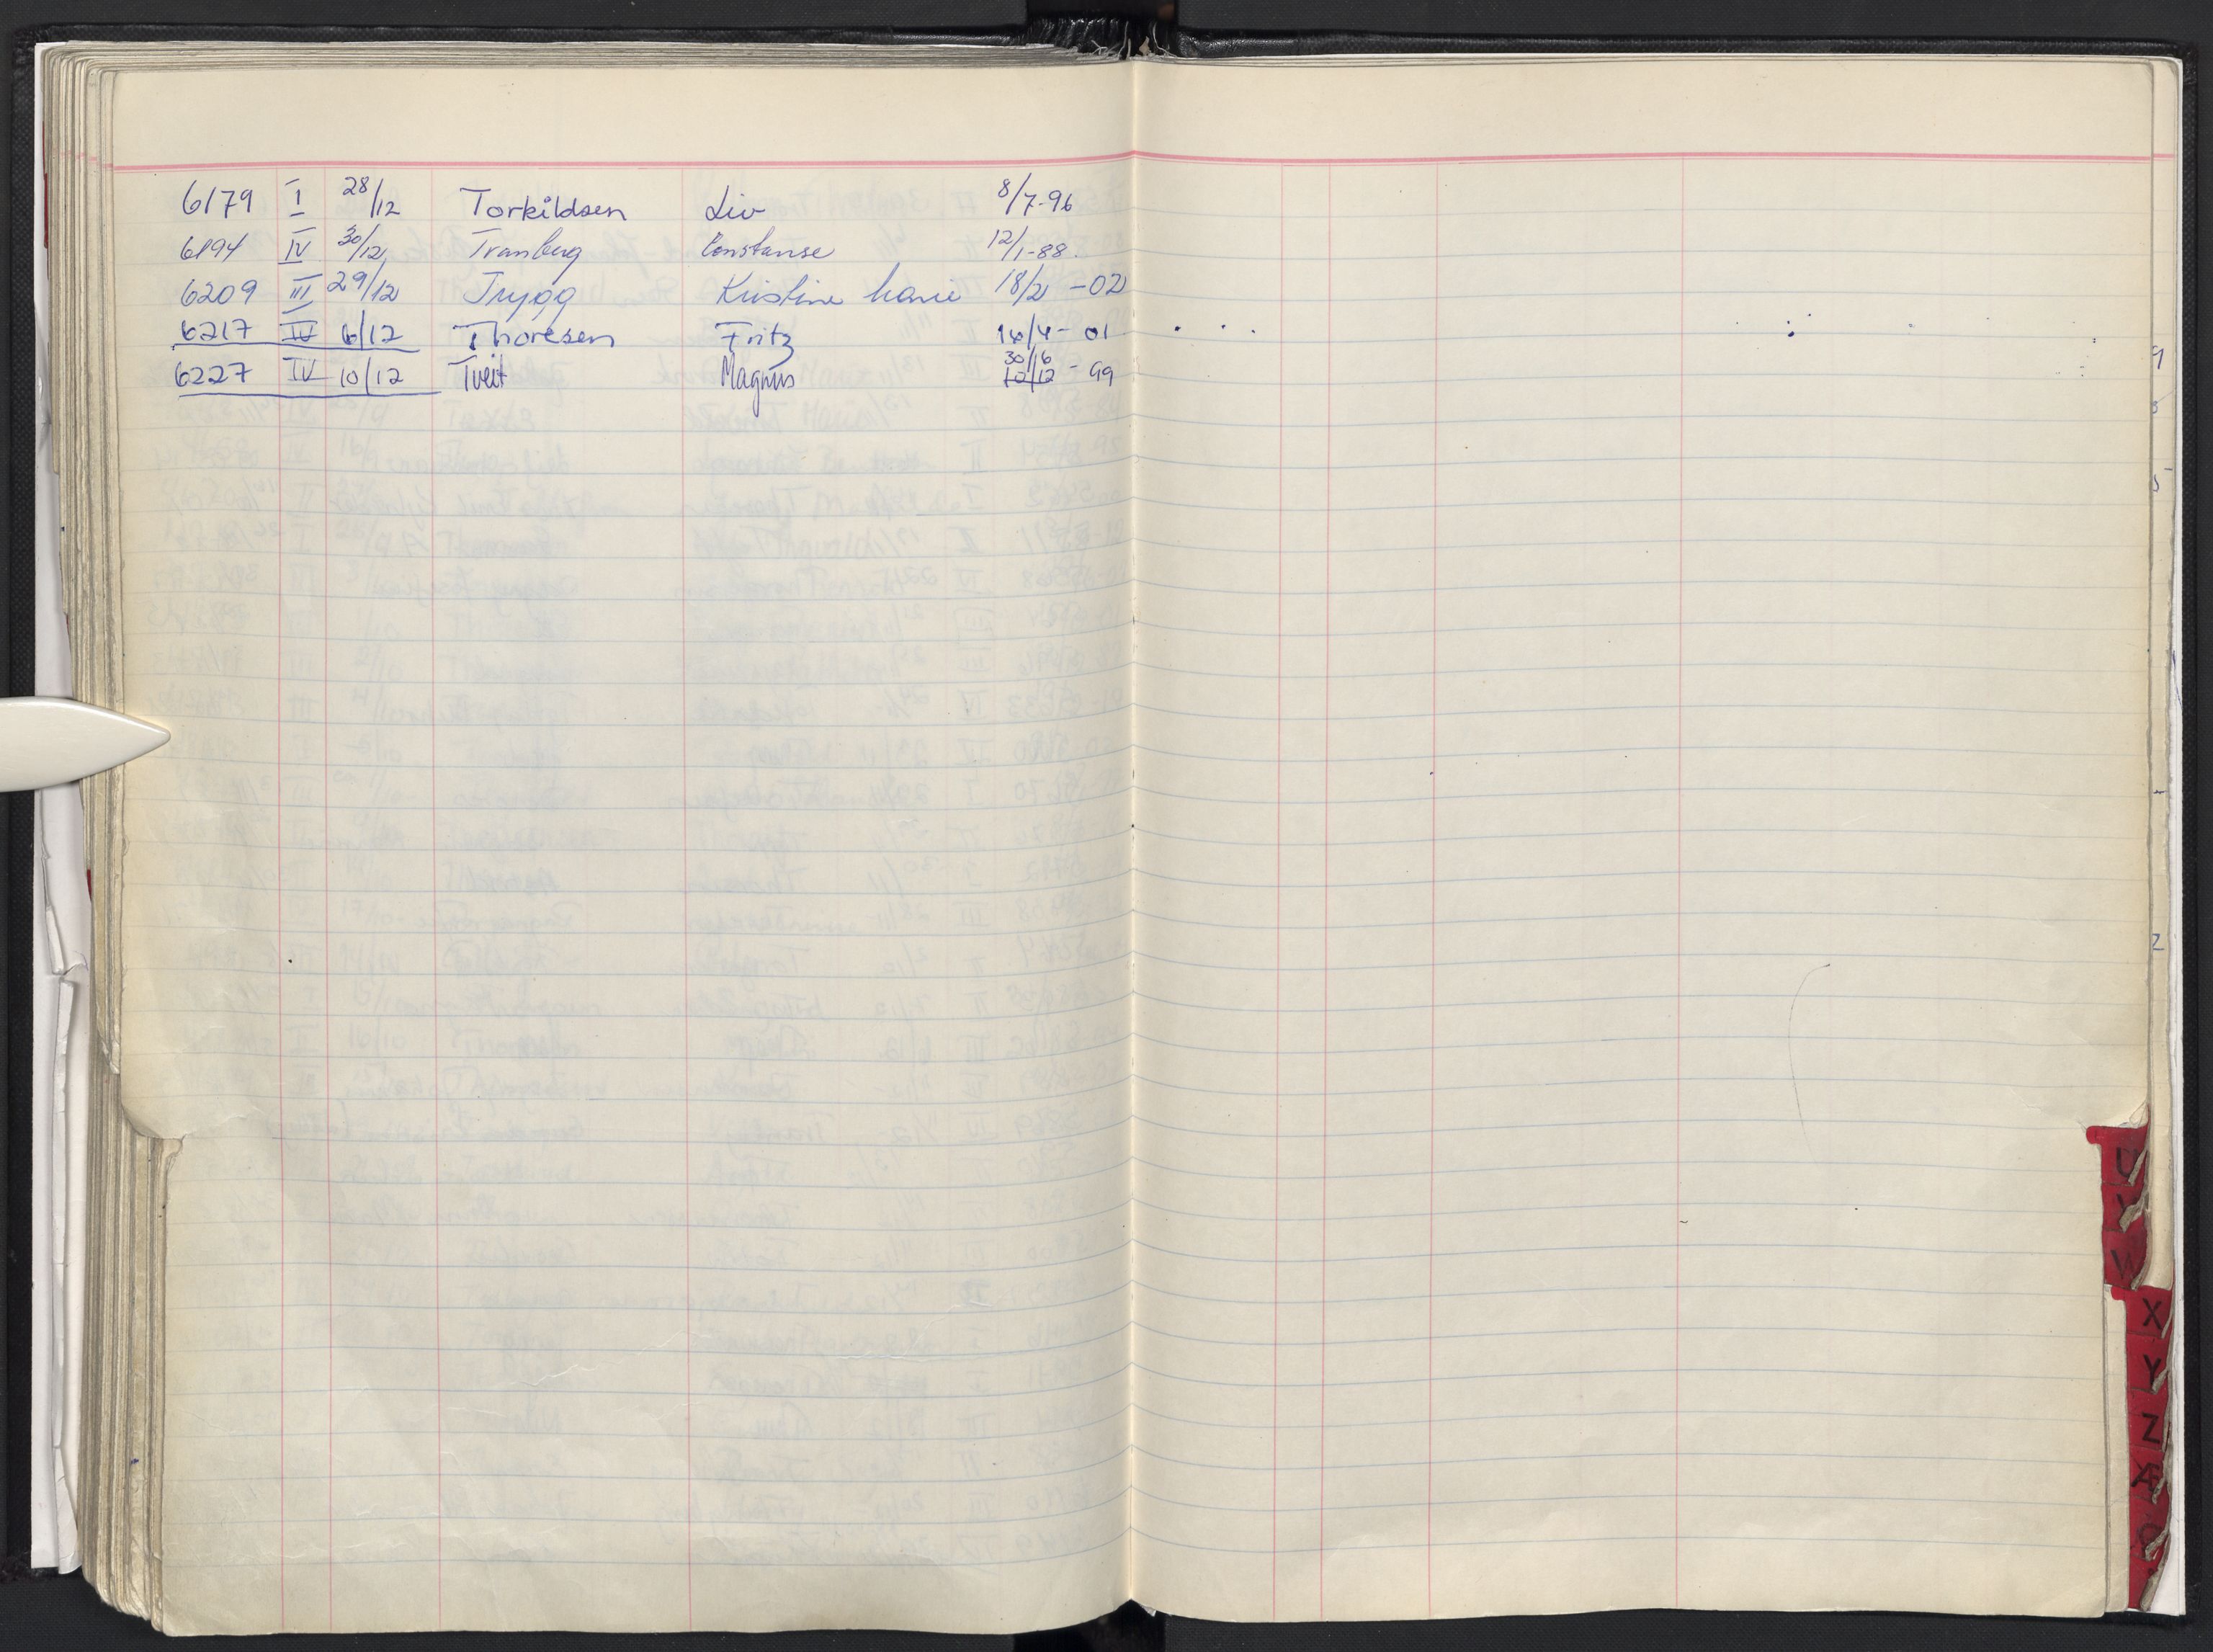 6179 I 28/12 Torkildsen Liv 8/7-96
6194 IV 30/12 Tranberg Constanse 12/1-88.
6209 III 29/12 Trygg Kristine Marie 18/2 -02
6217 IV 6/12 Thoresen Fritz 16/4- 01
6227 IV 10/12 Tveit Magnus 30/6 12/12 - 99
U
V
W
X
Y
Z
Æ
Ø